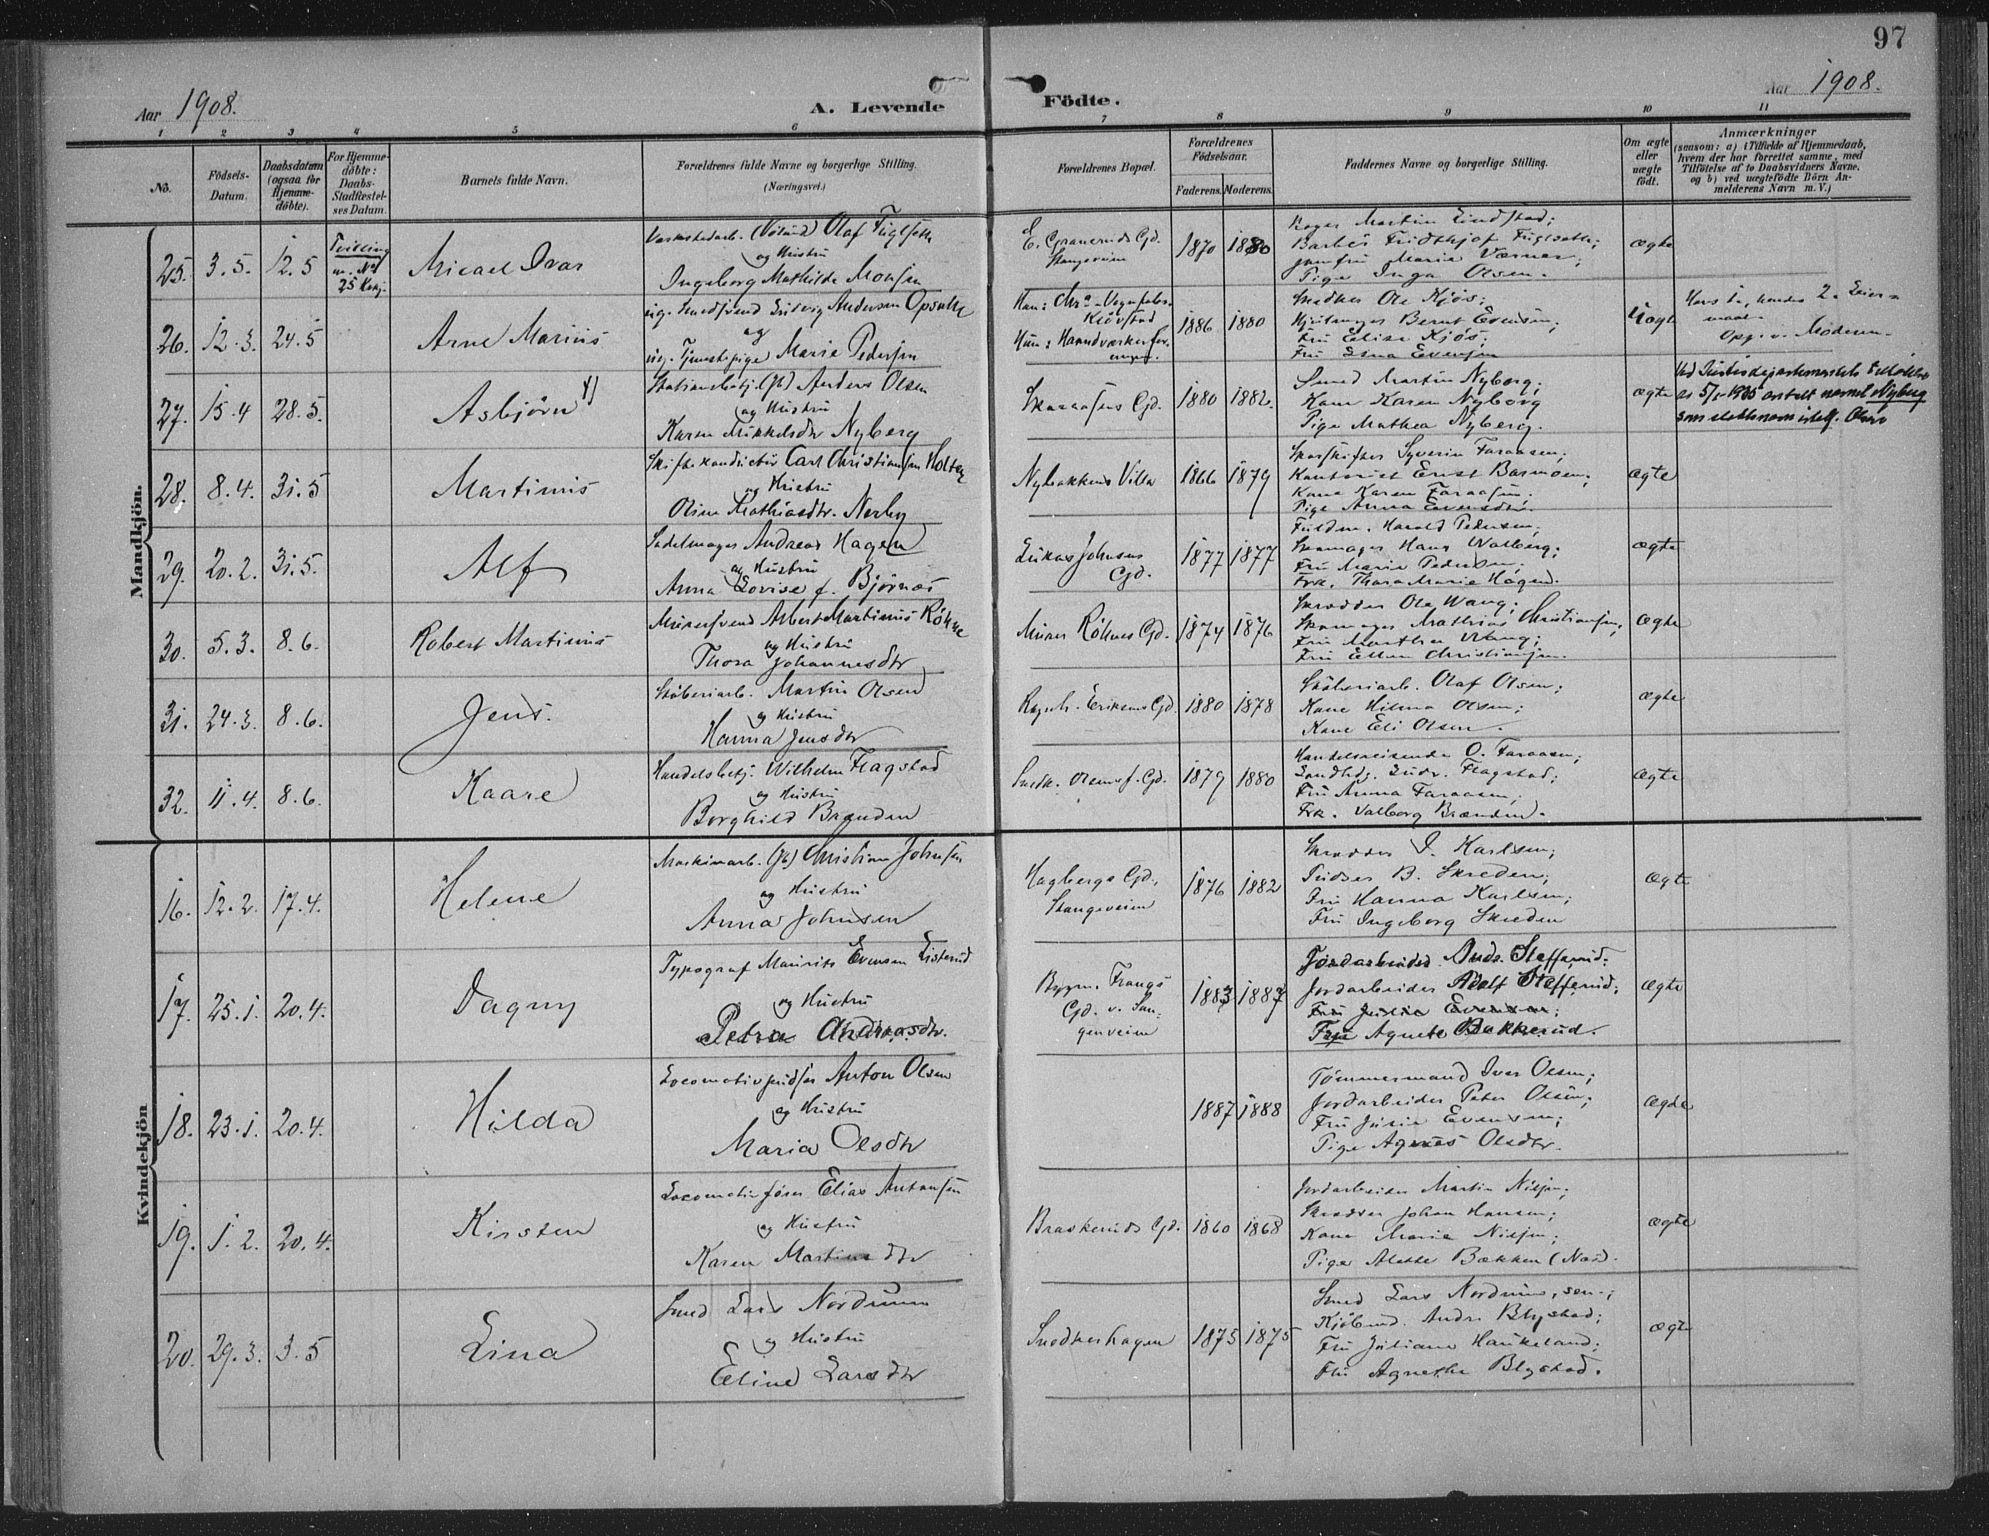 97
Aar 1908.
A. Levende
Födte.
Aar 1908.
1 2 3 4 5 6 7 8 9 10 11
No.
Födsels-
Datum.
Daabsdatum
(ogsaa for
Hjemme-
döbte).
For Hjemme-
döbte:
Daabs-
Stadfæstel-
ses Datum.
Barnets fulde Navn.
Forældrenes fulde Navne og borgerlige Stilling.
(Næringsvei.)
Forældrenes Bopæl.
Forældrenes
Födselsaar.
Faderens. Moderens.
Faddernes Navne og borgerlige Stilling.
Om ægte
eller
uægte
födt.
Anmærkninger
(saasom: a) i Tilfælde af Hjemmedaab,
hvem der har forrettet samme, med
Tilföielse af to Daabsvidners Navne,
og b) ved uægtefödte Börn An-
melderens Navn m. V.)
Mandkjön.
25. 3.5. 12.5
Tvilling
m. No
25 Kvkj.
Micael Ivar
Olaf Fuglseth
og Hustru
Ingeborg Mathilde Monsen
E. Graneruds Gd.
Stangeveien
1870 1880
Martin Lindstad;
Barber Fridthjof Fuglseth;
Jomfru Marie Værner;
Pige Inga Olsen.
ægte
26. 12.3. 24.5
Arne Marius
ug. Smedsvend Ludvig Andersen Opsath
og
ug. Tjenestepige Marie Pedersen
Han:
Hun: Haandværkerfor-
eningen.
1886 1880
Snedker Ole Kjös;
Hjulmager Bernt Evensen;
Fru Elise Kjös;
Fru Lina Evensen
Uægte
Hans 1., hendes 2. Leier-
maal.
Opg. v. Moderen.
27. 15.4 28.5.
Asbjörn 1)
Stationsbetj. (Jb) Anders Olsen
og Hustru
Karen Mikkelsdtr Nyberg
Skaraasens Gd.
1880 1882.
Smed Martin Nyborg;
Kone Karen Nyborg
Pige Mathea Nyberg.
ægte
Ved Justisdepartementets
av 5/1-1925 antatt navnet Nyberg
som slektsnavn istf. Olsen
28. 8.4. 31.5
Martinus
Skiftekonduktör Carl Christiansen Holten
og Hustru
Oline Mathiasdtr. Norby
Nybakkens Villa
1866 1879
Skarskifter Syverin Faraasen;
Kontorist Ernst Barmoen;
Kone Karen Faraasen;
Pige Anna Evensdtr.
ægte
29. 20.2. 31.5.
Alf
Sadelmager Andreas Hagen
og Hustru
Anna Lovise f. Björnæs
Lukas Johnsens
Gd.
1877 1877
Fuldm. Harald Pedersen;
Skomager Hans Walberg;
Fru Marie Pedersen;
Frk. Thora Marie Hagen.
ægte
30. 5.3. 8.6.
Robert Martinus
Murersvend Albert Martinus Röhne
og Hustru
Thora Johannesdtr
Murer Röhnes Gd.
1874 1876
Skrædder Ole Wang;
Skomager Mathias Christiansen;
Fru Marthea Wang;
Fru Ellen Christiansen.
ægte
31. 24.3. 8.6.
Jens.
Stöberiarb. Martin Olsen
og Hustru
Hanna Jensdtr
Ragnh. Eriksens Gd.
1880 1878
Stöberiarb. Olaf Olsen;
Kone Hilma Olsen;
Kone Eli Olsen.
ægte
32. 11.4. 8.6.
Kaare
Handelsbetj. Wilhelm Flagstad
og Hustru
Borghild Brænden
Snedk. Olsens f. Gd.
1879 1880
Handelsreisende O. Faraasen;
Landhdl. Gudv. Flagstad;
Fru Anna Faraasen;
Frk. Valborg Brænden.
ægte
Kvindekjön
16. 12.2. 17.4.
Helene
Maskinarb. (Jb) Christian Johnsen
og Hustru
Anna Johnsen
Hagbergs Gd.,
Stangeveien
1876 1882
Skrædder I. Karlsen;
B. Skreden;
Fru Hanna Karlsen;
Fru Ingeborg Skreden
ægte
17. 25.1. 20.4.
Dagny
Typograf Maurits Evensen Listerud
og Hustru
Petra Andreasdtr.
Bygm. Frangs
Gd. v. Stan-
genveien
1883 1887
Jordarbeider Ands. Stefferud;
Jordarbeider Adolf Stefferud;
Fru Julie Evensen;
Frk. Agnete Bakkerud.
ægte
18. 23.1. 20.4.
Hilda
Locomotivpudser Anton Olsen
og Hustru
Maria Olsdtr
1887 1888
Tömmermand Iver Olsen;
Jordarbeider Peter Olsen;
Fru Julie Evensen;
Pige Agnes Olsdtr.
ægte
19. 1.2. 20.4.
Kirsten
Locomotivförer Elias Antonsen
og Hustru
Karen Martinsdtr
Braskeruds Gd.
1860 1868
Jordarbeider Martin Nilsen;
Skrædder Johan Hansen;
Kone Marie Nilsen;
Pige Alette Bækken (Næs).
ægte
20. 29.3. 3.5
Lina
Smed Lars Nordrum
og Hustru
Eline Larsdtr
Snedkerhagen
1875 1875
Smed Lars Nordrum, sen.;
Kjöbmd. Andr. Blystad;
Fru Juliane Haukeland;
Fru Agnethe Blystad.
ægte